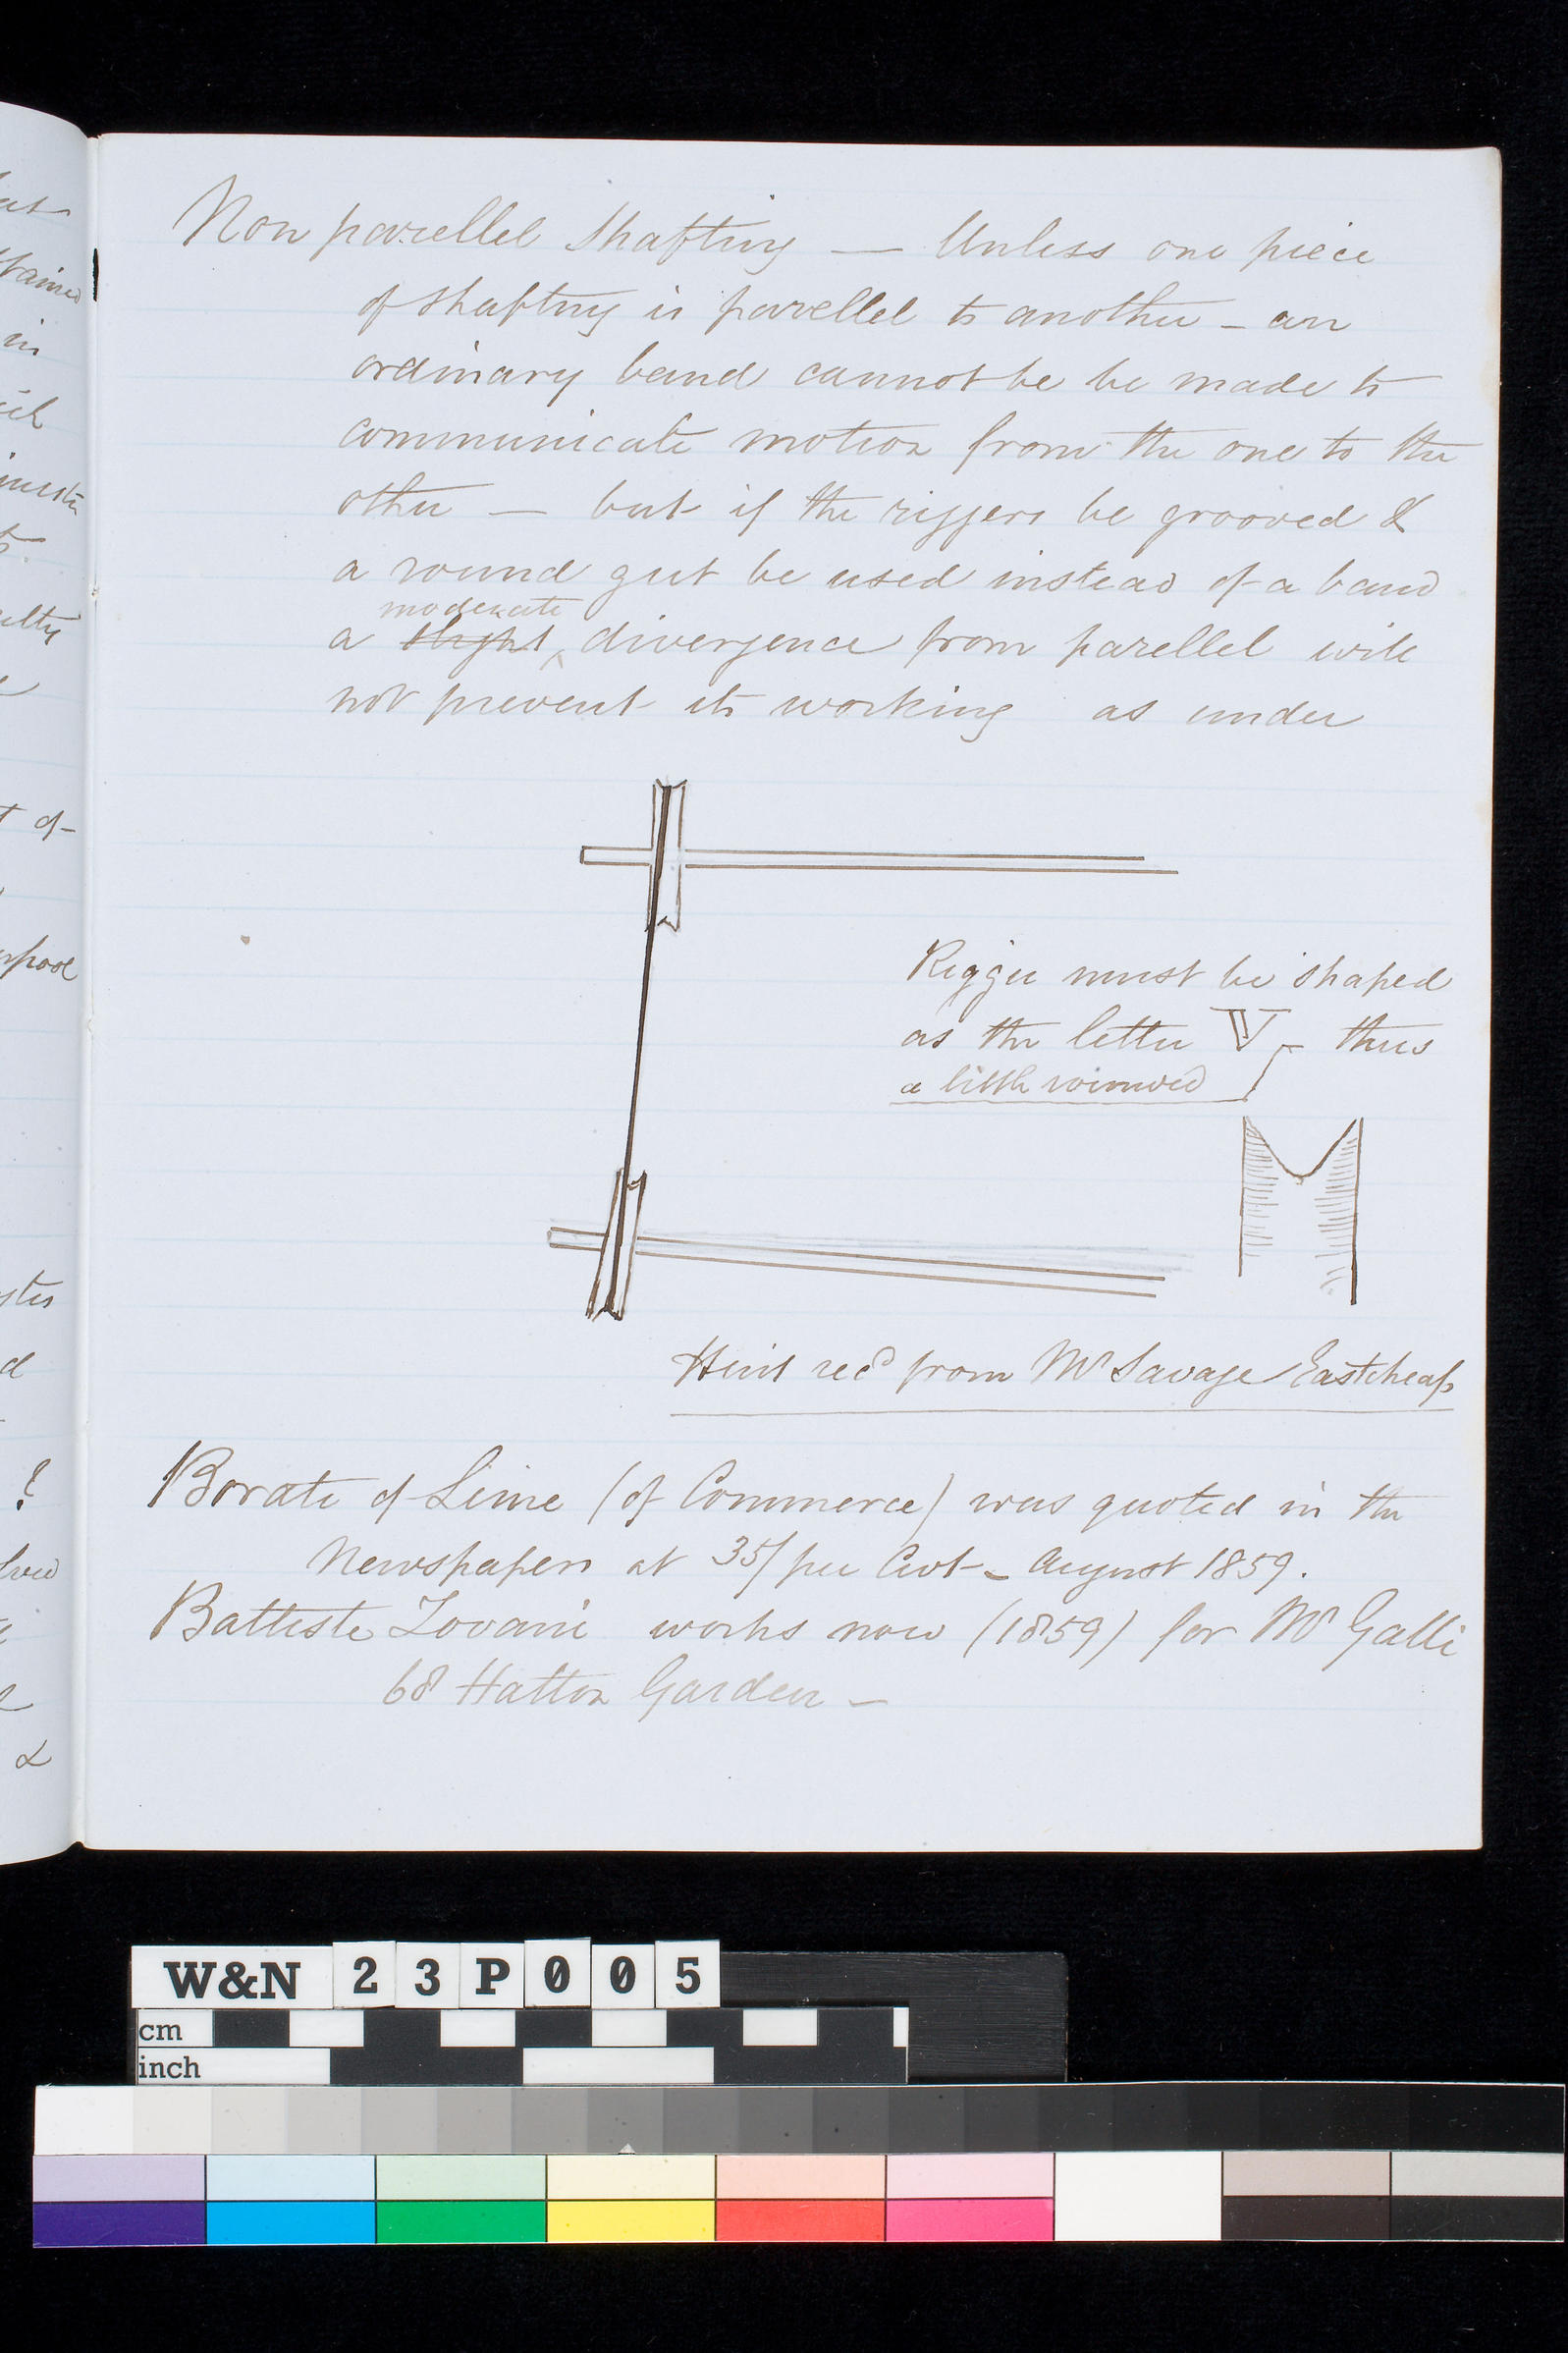 Non parellel Shafting — Unless one piece
of shafting is parellel to another - an
ordinary band cannot be be made to
communicate motion from the one to the
other — but if the riggers be grooved &
a round gut be used instead of a band
moderate
a slight divergence from parellel will
not prevent its working as under
Rigger must be shaped
as the letter V - thus
a little rounded
Hint recd from Mr Savage Eastcheap
Borate of Lime (of Commerce) was quoted in the
Newspapers at 35/ per Cwt - August 1859.
Battiste works now (1859) for Mr Galli
68 Hatton Garden —
W&N 23P005
cm
inch